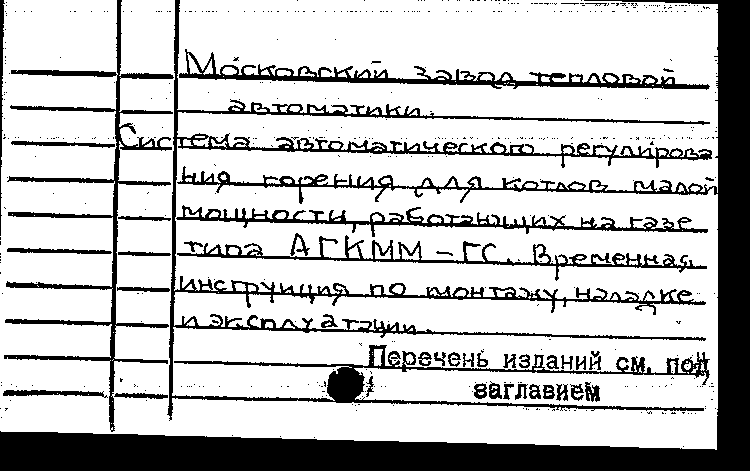 Московский завод тепловой
автоматики.
Система автоматического регулирова
ния горения для котлов малой
мощности, работающих на газе
типа АГКММ-ГС. Временная
инструкция по монтажу, наладке
и эксплуатации.
Перечень изданий см. под
заглавием